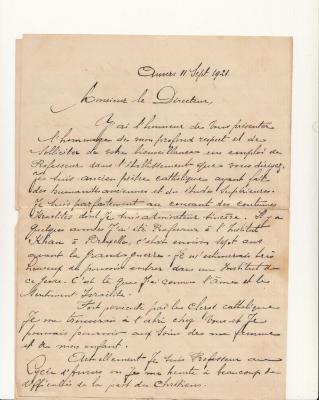 Anvers 11 Sept 1921.
Monsieur le Directeur,
J'ai l'honneur de vous présenter
l'hommage de mon profond respect et de
solliciter de votre bienveillance un emploi de
Professeur dans l'établissement que vous dirigez.
Je suis ancien prêtre catholique ayant fait
des humanités anciennes et des études supérieures.
Je suis parfaitement au courant des coutumes
Israélites dont je suis admirateur sincère. Il y a
quelques années j'ai été Professeur à l'Institut
Khan à Bruxelles, c'était environ sept ans
avant la grande guerre. Je m'estimerais très
heureux de pouvoir entrer dans un Institut de
ce genre. C'est là que j'ai connu l'âme et les
Sentiments Israélites.
Fort persécuté par les Clercs catholiques
Je me trouverais à l'abri chez vous et Je
pourrais pourvoir aux soins de ma femme
et de mon enfant.
Actuellement Je suis Professeur au
Lycée d'Anvers où je me heurte à beaucoup de
difficultés de la part des Chrétiens.